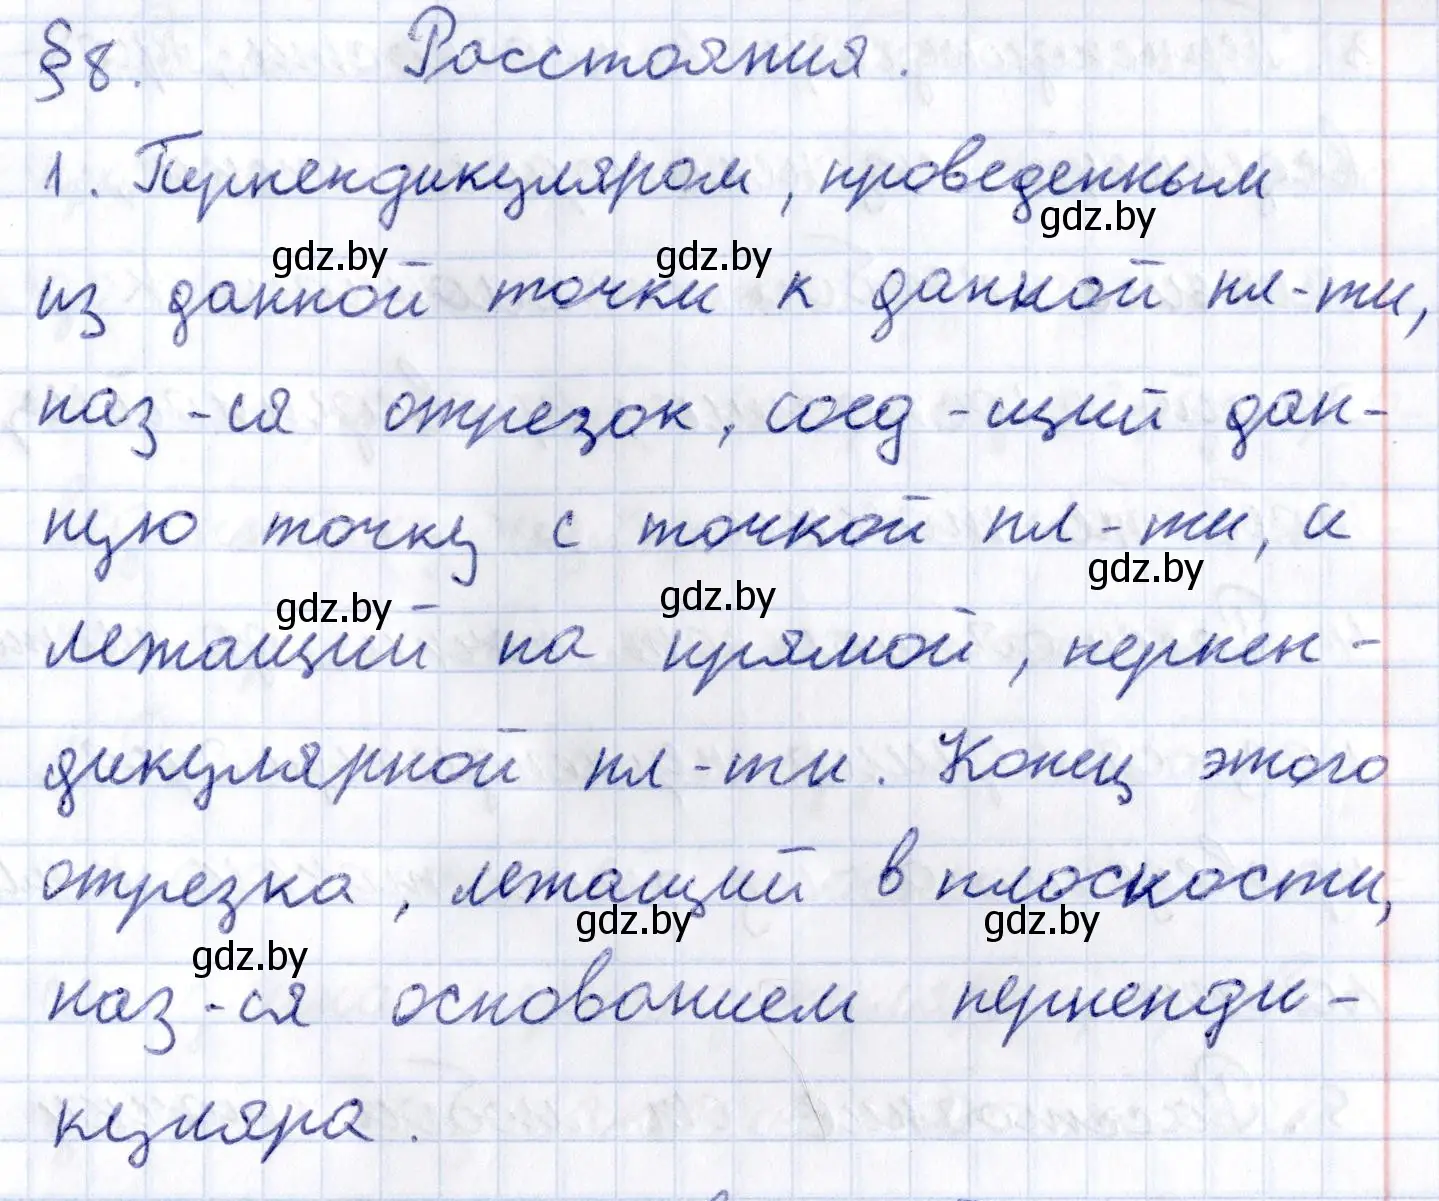 §8. Расстояния.
1. Перпендикуляром, проведенным
gdz.by
gdz.by gdz.by
из данной точки к данной пл-ти,
наз-ся отрезок, соед-щий дан-
ную точку с точкой пл-ти, и
gdz.by
gdz.by gdz.by
лежащий на прямой, перпен-
дикулярной пл-ти. Конец этого
отрезка, лежащий в плоскости,
gdz.by gdz.by
gdz.by
наз-ся основанием перпенди-
куляра.